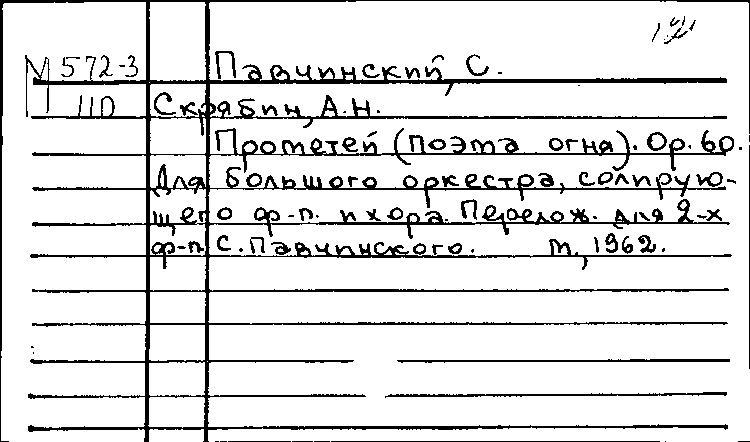 М 572-3 Павчинский, С.
110 Скрябин, А.Н.
Прометей (поэма огня). Op. 60.
Для большого оркестра, солирую-
щего ф-п. и хора. Перелож. для 2-х
ф-п. С. Павчинского. М., 1962.